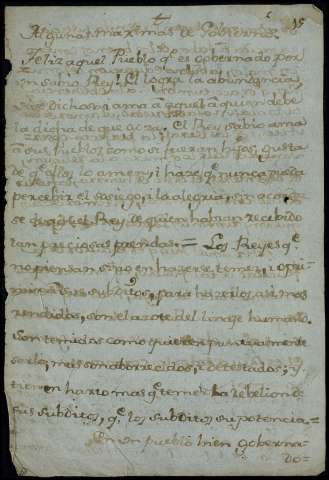 15
Algunas maximas de Gobierno.
Feliz aquel Pueblo q.e es gobernado por
un sabio Rey! El logra la abundancia,
vive dichoso i ama â aquel â quien debe
la dicha de que goza. El Rey sabio ama
â sus Pueblos como si fueran hijos, gusta
de q.e ellos lo amen, i haze q.e nunca pueda
percebir el sosiego, i la alegria, sin
se de aquel Rey de quien habian recibido
tan preciosas prendas. = Los Reyes q.e
no piensan sino en hazerse temer, i opri-
mir a sus subditos, para hazerlos asi mas
rendidos, son el azote del linage humano.
Son temidos como quieren puntualmente
serlo, mas son aborrecidos, i detestados; y
tienen harto mas q.e temer la rebelion de
sus subditos, q.e los subditos su potencia =
En un pueblo bien goberna-
do=